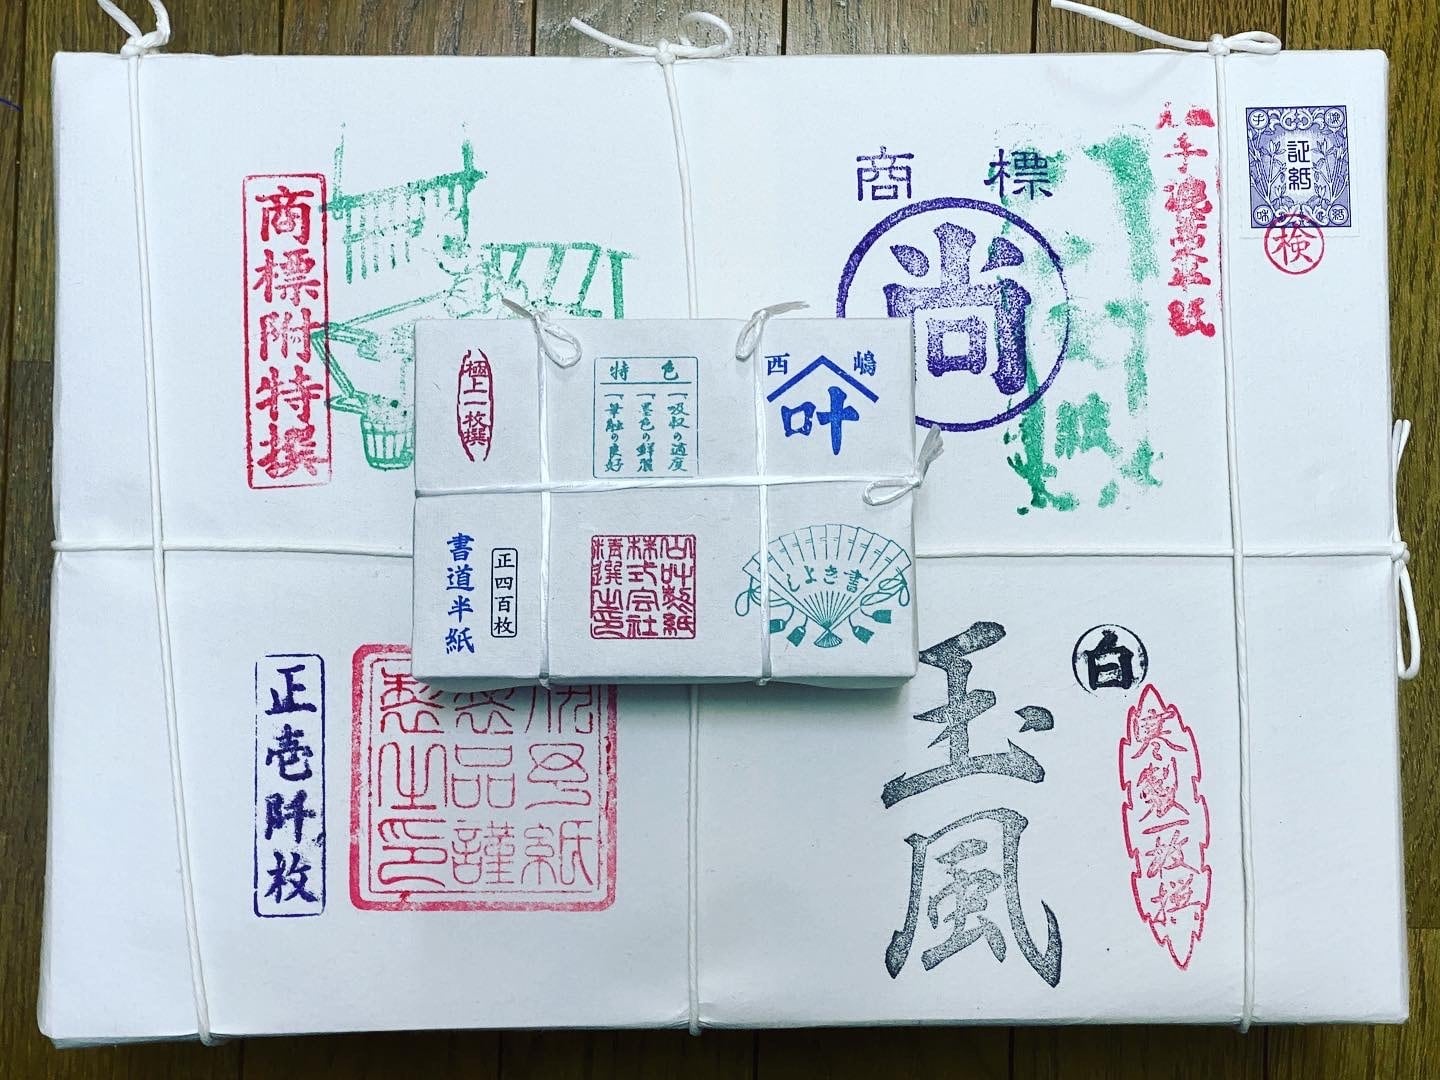 商標附特撰
商標
尚
手漉画仙紙
証紙
検
極上一枚撰
特色
一、吸収の適度
一、墨色の鮮麗
一、筆触の良好
西嶋
叶
書道半紙
正四百枚
山叶製紙
株式会社
精選之印
書きよし
正壱阡枚
伊予紙
製品謹
製之印
玉風
白
寒製一枚撰